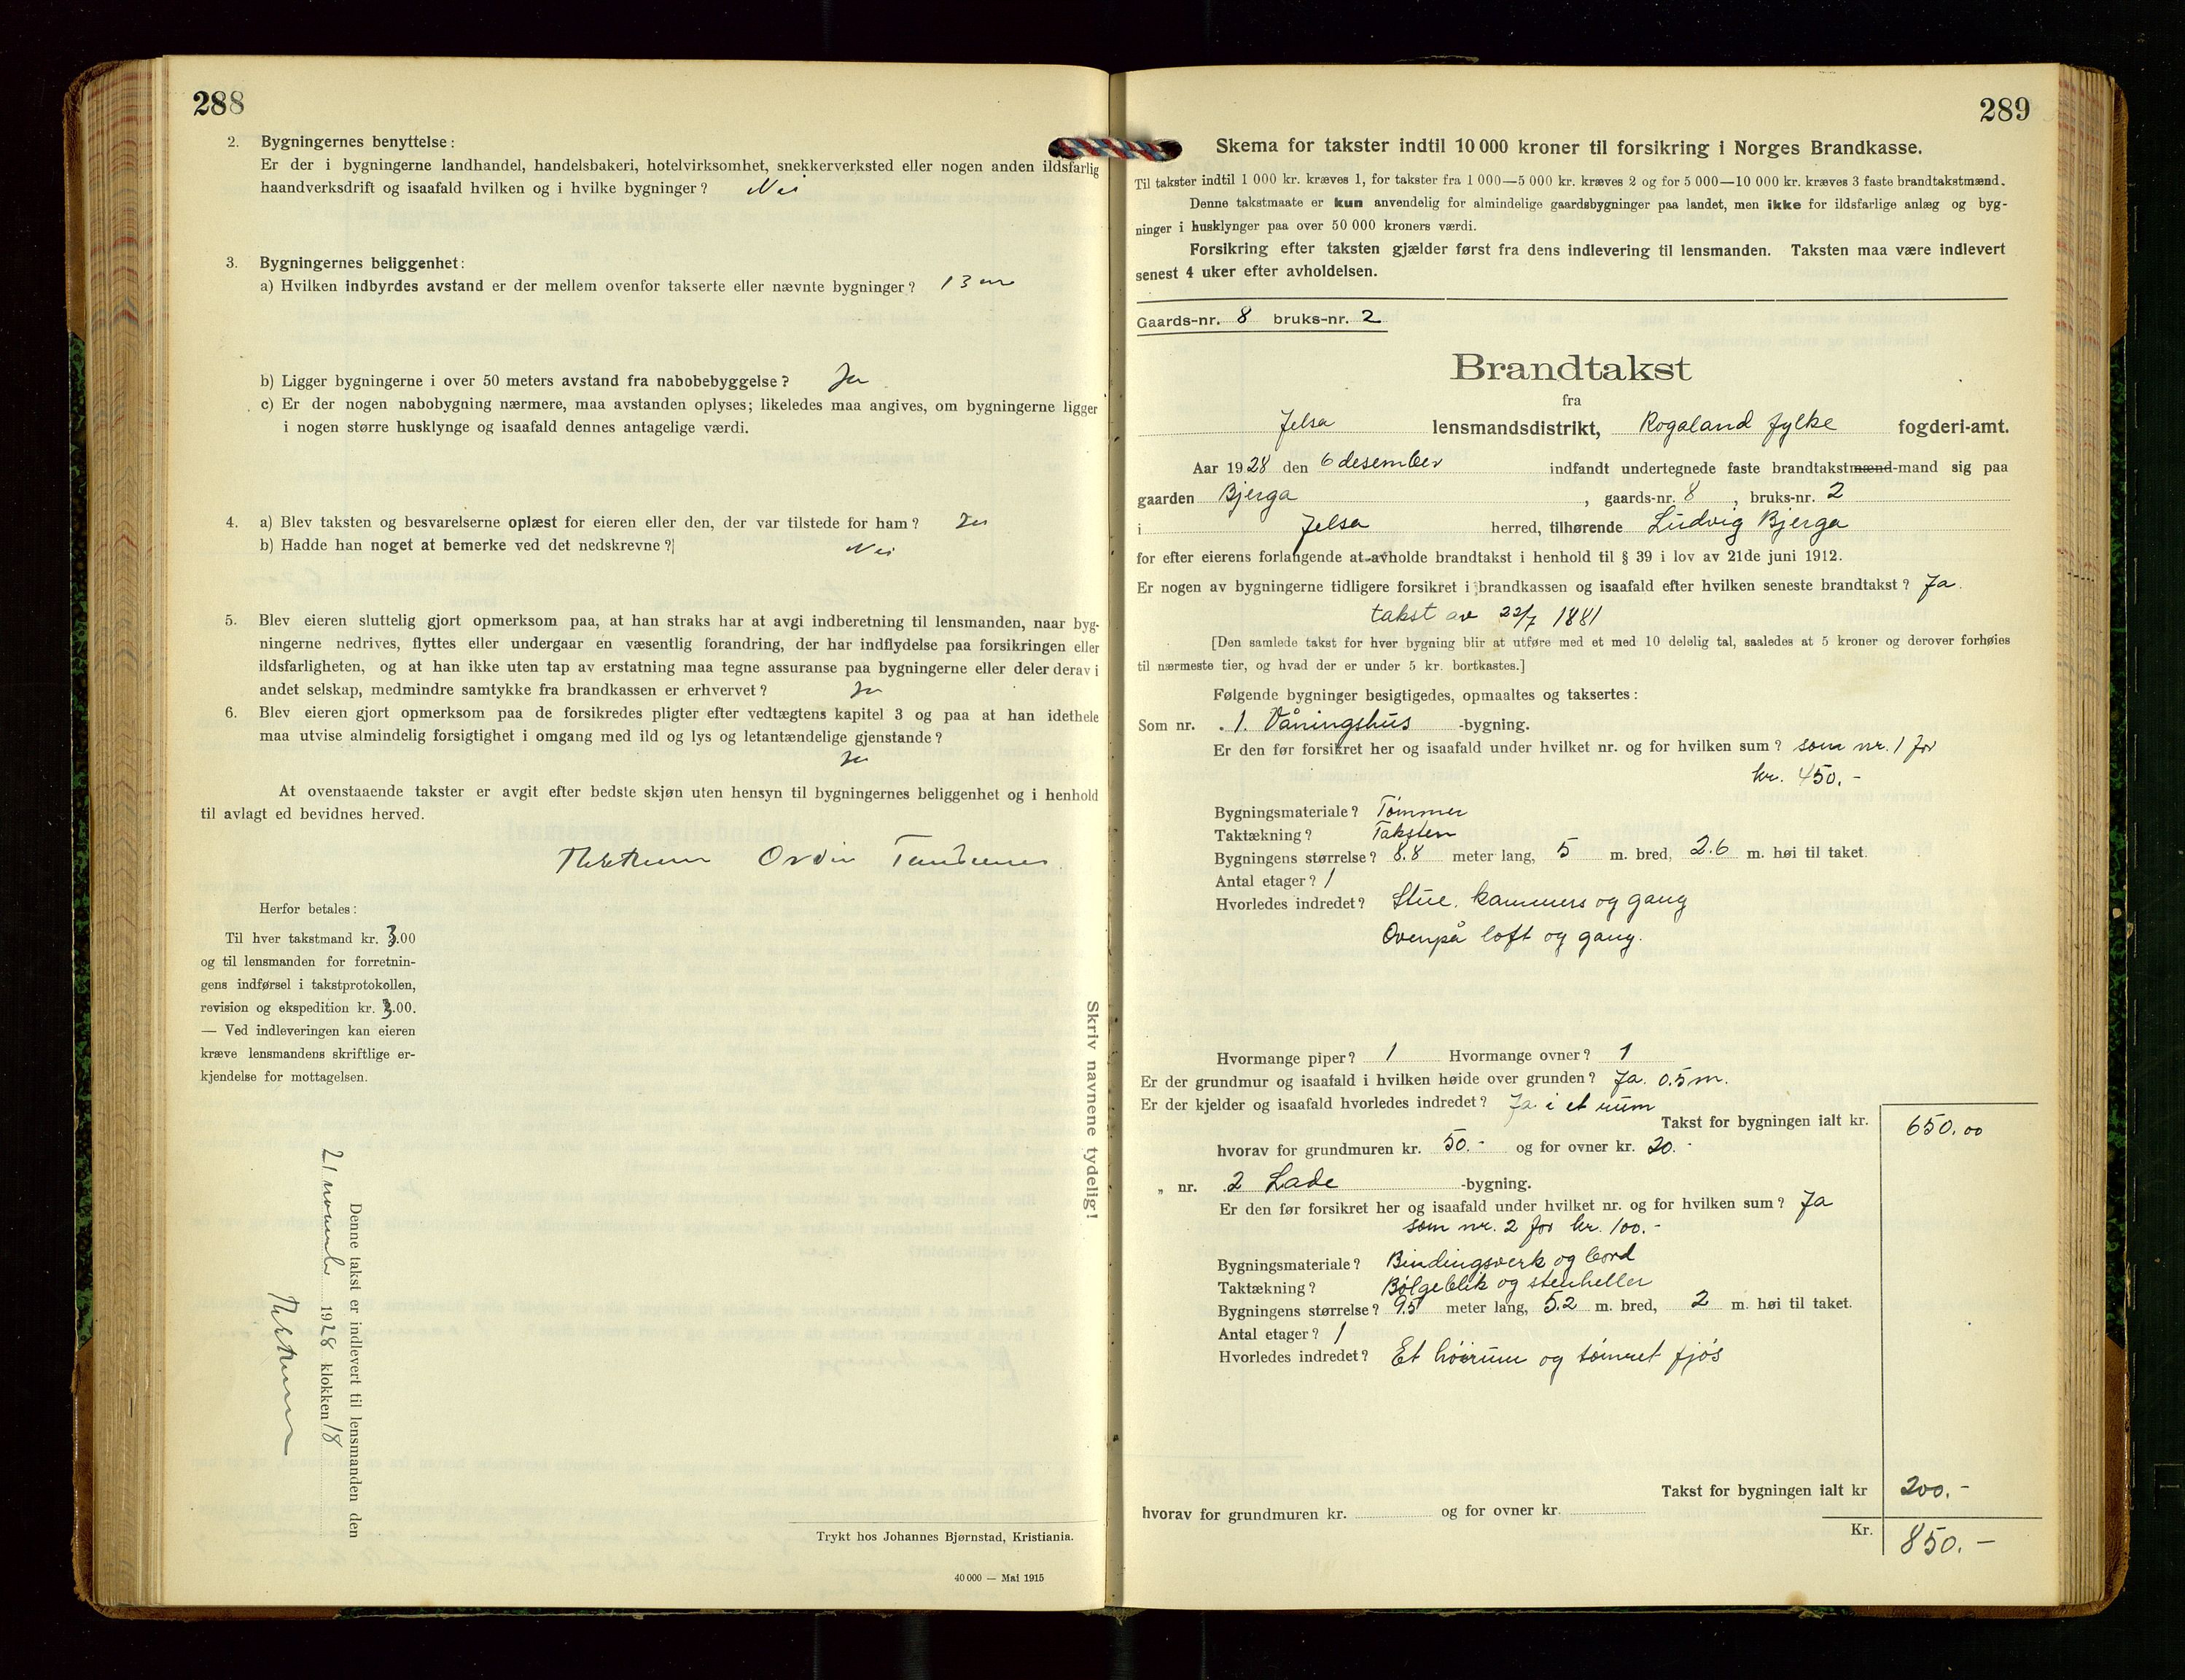 288
2. Bygningernes benyttelse:
Er der i bygningerne landhandel, handelsbakeri, hotelvirksomhet, snekkerverksted eller nogen anden ildsfarlig
haandverksdrift og isaafald hvilken og i hvilke bygninger? Nei
3. Bygningernes beliggenhet:
a) Hvilken indbyrdes avstand er der mellem ovenfor takserte eller nævnte bygninger? 13 m
b) Ligger bygningerne i over 50 meters avstand fra nabobebyggelse? Ja
c) Er der nogen nabobygning nærmere, maa avstanden oplyses; likeledes maa angives, om bygningerne ligger
i nogen større husklynge og isaafald dennes antagelige værdi.
4. a) Blev taksten og besvarelserne oplæst for eieren eller den, der var tilstede for ham? Ja
b) Hadde han noget at bemerke ved det nedskrevne? Nei
5. Blev eieren sluttelig gjort opmerksom paa, at han straks har at avgi indberetning til lensmanden, naar byg-
ningerne nedrives, flyttes eller undergaar en væsentlig forandring, der har indflydelse paa forsikringen eller
ildsfarligheten, og at han ikke uten tap av erstatning maa tegne assuranse paa bygningerne eller deler derav i
andet selskap, medmindre samtykke fra brandkassen er erhvervet? Ja
6. Blev eieren gjort opmerksom paa de forsikredes pligter efter vedtægtens kapitel 3 og paa at han idethele
maa utvise almindelig forsigtighet i omgang med ild og lys og letantændelige gjenstande?
Ja
At ovenstaaende takster er avgit efter bedste skjøn uten hensyn til bygningernes beliggenhet og i henhold
til avlagt ed bevidnes herved.
Herfor betales:
Til hver takstmand kr. 3.00
og til lensmanden for forretnin-
gens indførsel i takstprotokollen,
revision og ekspedition kr. 3.00.
— Ved indleveringen kan eieren
kræve lensmandens skriftlige er-
kjendelse for mottagelsen.
Denne takst er indlevert til lensmanden den
21 november 1928 klokken 18
Skriv navnene tydelig!
Trykt hos Johannes Bjørnstad, Kristiania.
40 000 — Mai 1915
289
Skema for takster indtil 10 000 kroner til forsikring i Norges Brandkasse.
Til takster indtil 1 000 kr. kræves 1, for takster fra 1 000—5 000 kr. kræves 2 og for 5 000—10 000 kr. kræves 3 faste brandtakstmænd.
Denne takstmaate er kun anvendelig for almindelige gaardsbygninger paa landet, men ikke for ildsfarlige anlæg og byg-
ninger i husklynger paa over 50 000 kroners værdi.
Forsikring efter taksten gjælder først fra dens indlevering til lensmanden. Taksten maa være indlevert
senest 4 uker efter avholdelsen.
Gaards-nr. 8 bruks-nr. 2
Brandtakst
fra
Jelsa lensmandsdistrikt, Rogaland fylke fogderi-amt.
Aar 1928 den 6 desember indfandt undertegnede faste brandtakstmænd-mand sig paa
gaarden Bjerga, gaards-nr. 8, bruks-nr. 2
i Jelsa herred, tilhørende Ludvig Bjerga
for efter eierens forlangende at avholde brandtakst i henhold til § 39 i lov av 21de juni 1912.
Er nogen av bygningerne tidligere forsikret i brandkassen og isaafald efter hvilken seneste brandtakst? Ja.
takst av 22/7 1881
[Den samlede takst for hver bygning blir at utføre med et med 10 delelig tal, saaledes at 5 kroner og derover forhøies
til nærmeste tier, og hvad der er under 5 kr. bortkastes.]
Følgende bygninger besigtigedes, opmaaltes og taksertes:
Som nr. 1. Våningshus -bygning.
Er den før forsikret her og isaafald under hvilket nr. og for hvilken sum? som nr. 1 for
kr. 450.-
Bygningsmateriale? Tømmer
Taktækning? Taksten
Bygningens størrelse? 8.8 meter lang, 5 m. bred, 2.6 m. høi til taket.
Antal etager? 1
Hvorledes indredet? Stue, kammers og gang
Ovenpå loft og gang.
Hvormange piper? 1 Hvormange ovner? 1
Er der grundmur og isaafald i hvilken høide over grunden? Ja. 0.5 m.
Er der kjelder og isaafald hvorledes indredet? Ja i et rum
Takst for bygningen ialt kr. 650.00
hvorav for grundmuren kr. 50.- og for ovner kr. 20.-
„ nr. 2 Lade -bygning.
Er den før forsikret her og isaafald under hvilket nr. og for hvilken sum? Ja
som nr. 2 for kr. 100.-
Bygningsmateriale? Bindingsverk og bord
Taktækning? Bølgeblik og stenheller
Bygningens størrelse? 9.5 meter lang, 5.2 m. bred, 2 m. høi til taket.
Antal etager? 1
Hvorledes indredet? Et høirum og tømret fjøs
Takst for bygningen ialt kr 200.-
hvorav for grundmuren kr. og for ovner kr.
Kr. 850.-